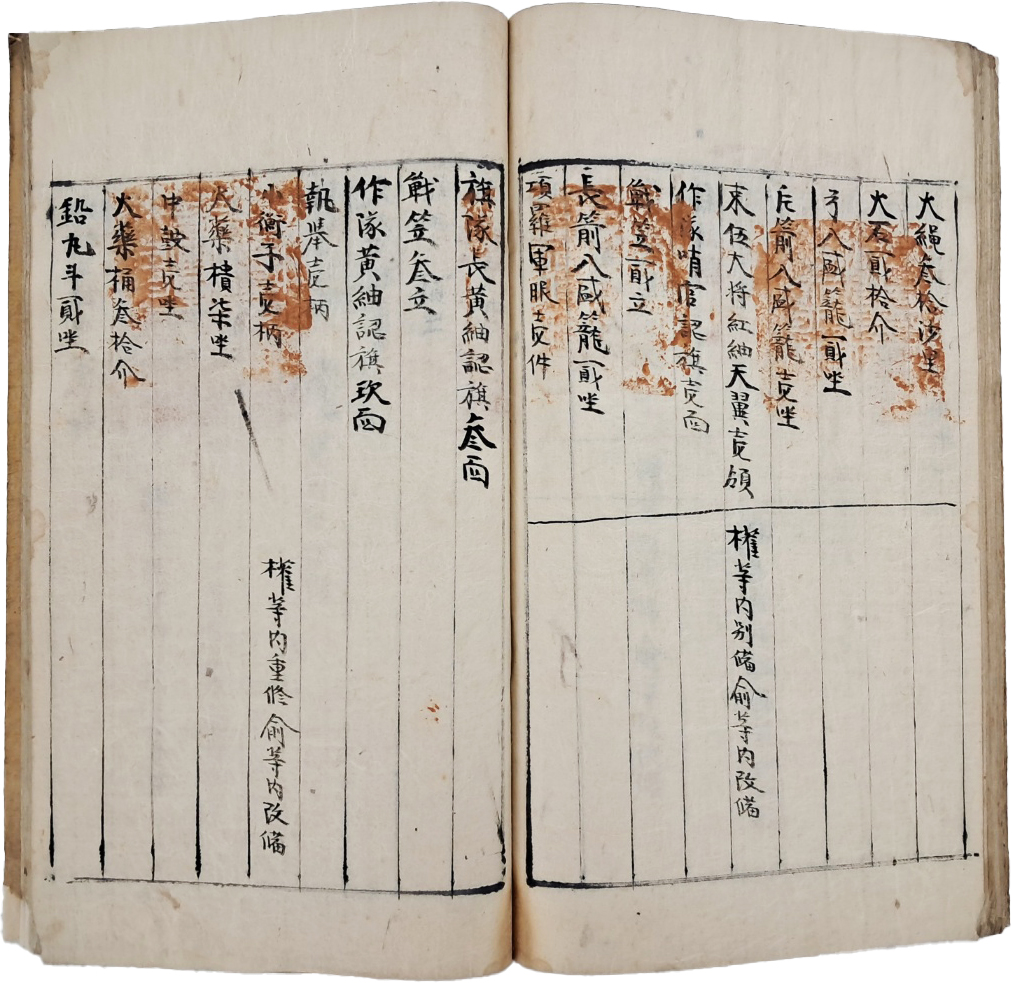 火繩叄拾沙里
火石貳拾介
弓入盛籠貳坐
片箭入盛籠壹坐
束伍大将紅紬天翼壹領
權等内別俻俞等内改俻
作隊哨官認旗壹面
戰笠貳立
長箭入盛籠貳坐
項羅軍服壹件
旗隊長黃紬認旗叄面
戰笠叄立
作隊黃紬認旗玖面
執擧壹柄
衝子壹柄
權等内重修俞等内改俻
火藥樻柒坐
中鼓壹坐
火藥桶叄拾介
鉛丸斗貳坐